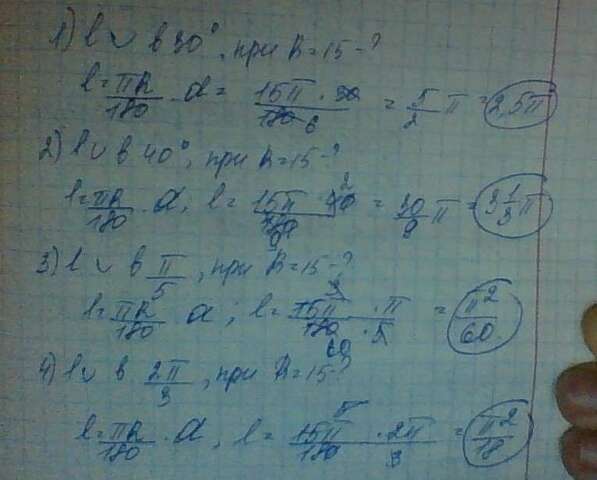 1) l ◡ в 30°, при R=15 - ?
l = πR/180 · α = 15π · 30/180 6 = 5/2 π = 2,5π
2) l ◡ в 40°, при R=15 - ?
l = πR/180 · α, l = 15π 40 2/180 9 = 30/9 π = 3 1/3 π
3) l ◡ в π/5, при R=15 - ?
l = πR/180 · α; l = 15π 3 · π/180 60 · 5 = π²/60
4) l ◡ в 2π/3, при R=15 - ?
l = πR/180 · α, l = 15π · 2π/180 · 3 = π²/18